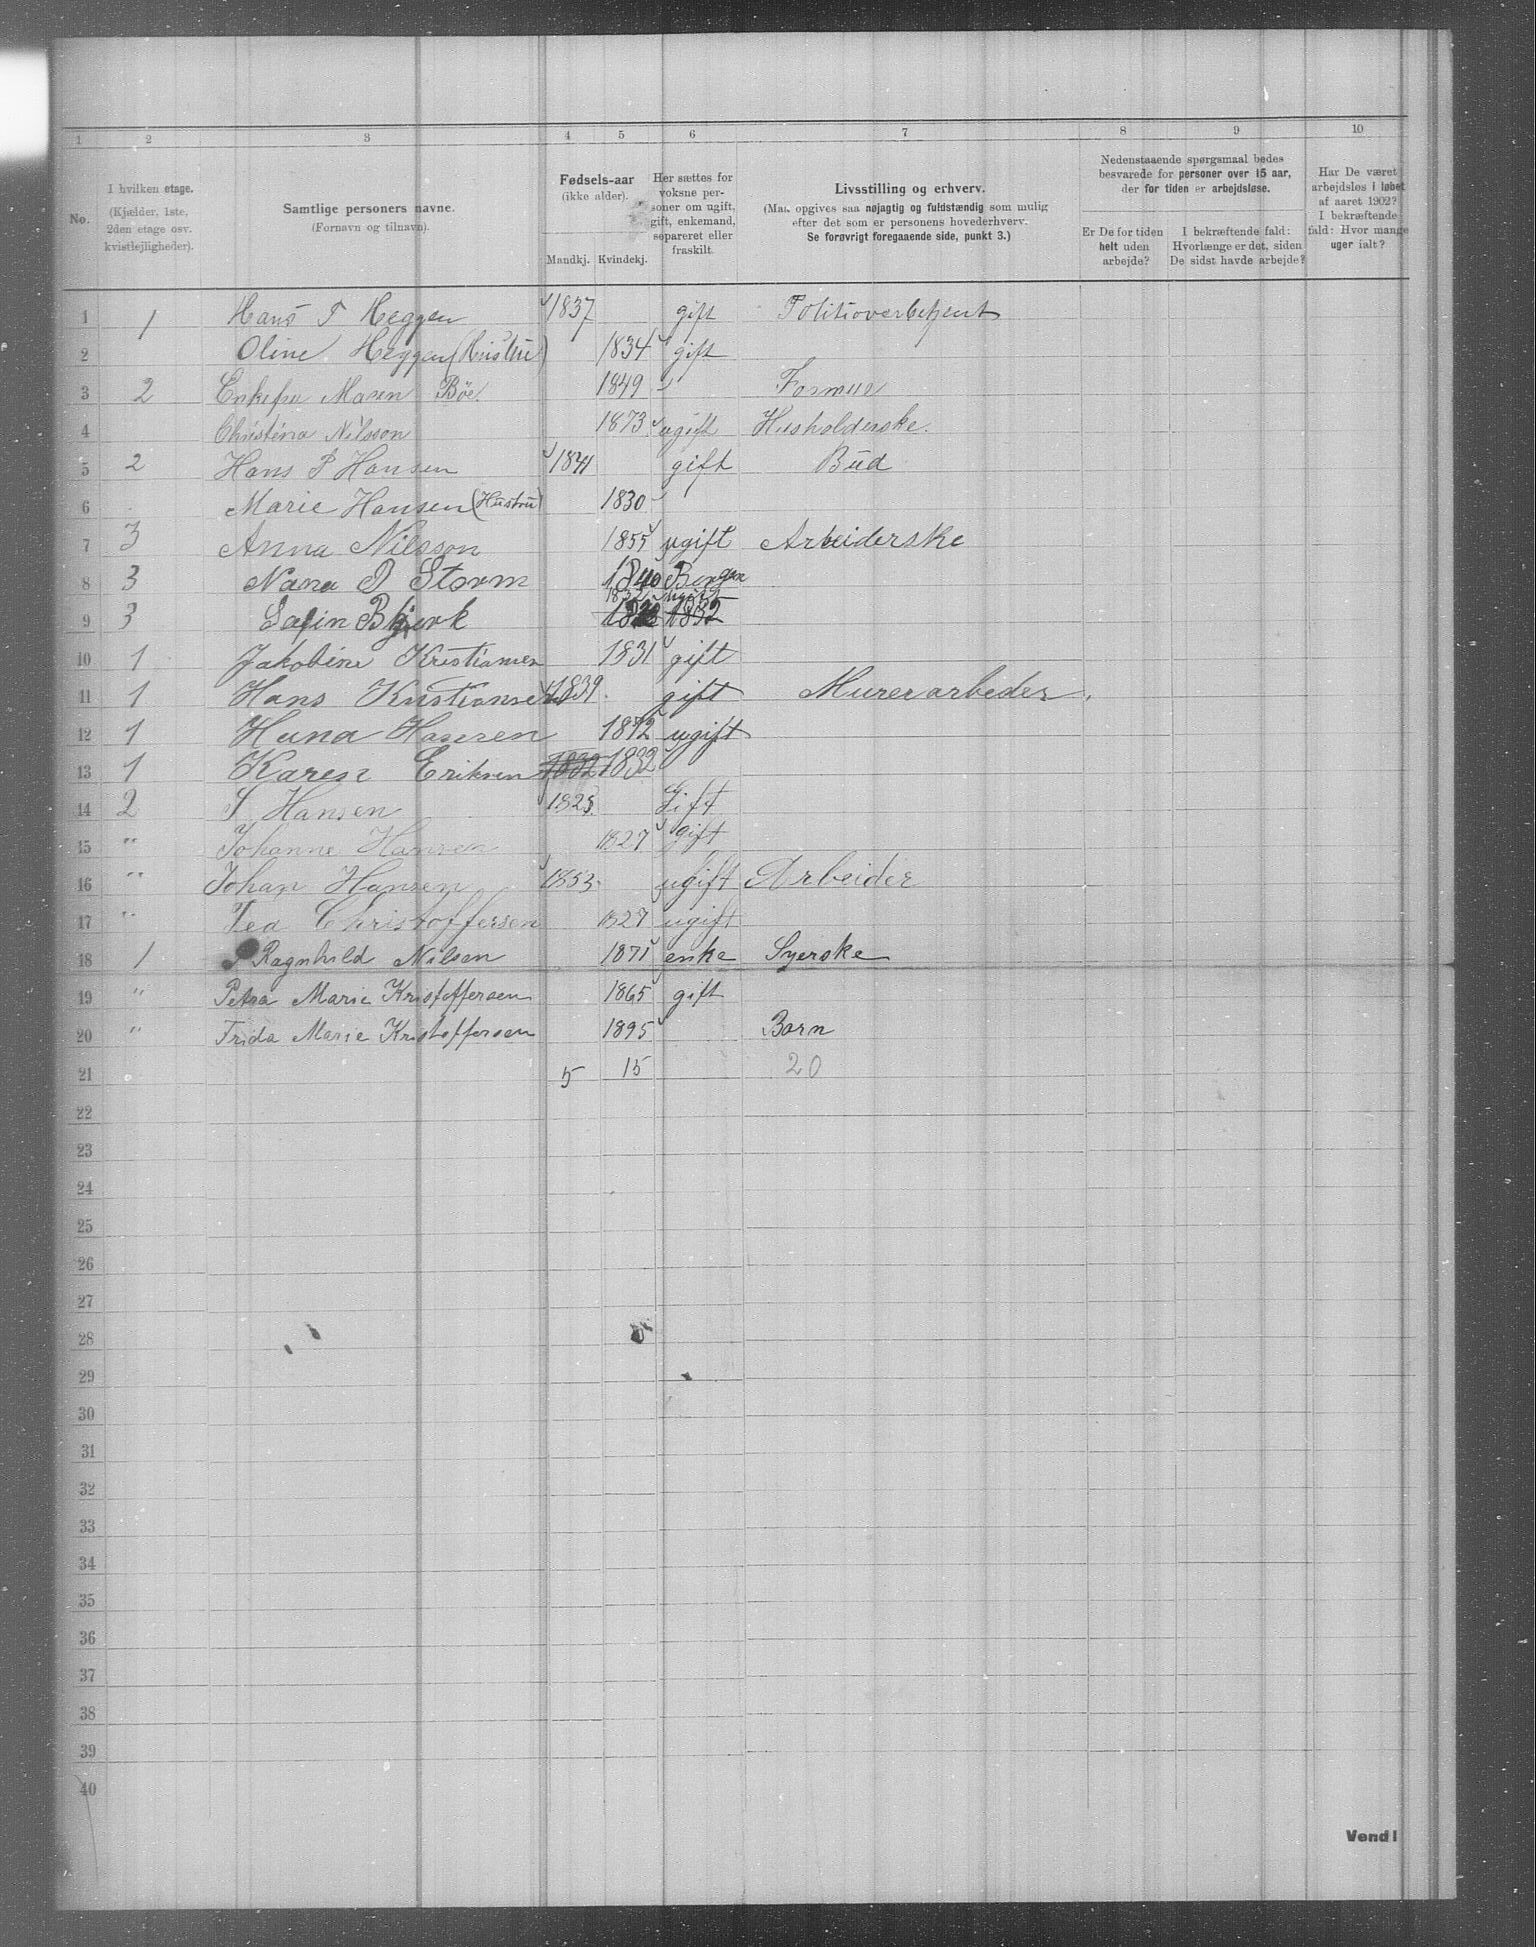 1 2 3 4 5 6 7 8 9 10
No.
I hvilken etage.
(Kjælder, 1ste,
2den etage osv.
kvistlejligheder).
Samtlige personers navne.
(Fornavn og tilnavn).
Fødsels-aar
(ikke alder).
Mandkj. Kvindekj.
Her sættes for
voksne per-
soner om ugift,
gift, enkemand,
separeret eller
fraskilt.
Livsstilling og erhverv.
(Man opgives saa nøjagtig og fuldstændig som mulig
efter det som er personens hovederhverv.
Se forøvrigt foregaaende side, punkt 3.)
Nedenstaaende spørgsmaal bedes
besvarede for personer over 15 aar,
der for tiden er arbejdsløse.
Er De for tiden
helt uden
arbejde?
I bekræftende fald:
Hvorlænge er det, siden
De sidst havde arbejde?
Har De været
arbejdsløs i løbet
af aaret 1902?
I bekræftende
fald: Hvor mange
uger ialt?
1 1 Hans T Heggen 1837 gift
2 Oline Heggen (Hustru) 1834 gift
3 2 Enkefru Maren Böe 1849 " Formue
4 Christina Nilsson 1873 ugift Husholderske.
5 2 Hans P Hansen 1841 gift Bud
6 Marie Hansen (Hustru) 1830 "
7 3 Anna Nilsson 1855 ugift Arbeiderske
8 3 Nana D Storm 1840
9 3 Bjerk 1832 ugift 1832
10 1 Jakobine Kristiansen 1831 gift
11 1 Hans Kristiansen 1839 gift Murerarbeder.
12 1 Huna Hansen 1872 ugift
13 1 Karen Eriksen 1832 1832
14 2 S Hansen 1825 Gift
15 " Johanne Hansen 1827 gift
16 " Johan Hansen 1853 ugift Arbeider
17 " Christoffersen 1827 ugift
18 1 Ragnhild Nilsen 1871 enke Syerske
19 " Petra Marie Kristoffersen 1865 gift
20 " Frida Marie Kristoffersen 1895 Barn
21 5 15 20
22
23
24
25
26
27
28
29
30
31
32
33
34
35
36
37
38
39
40
Vend!